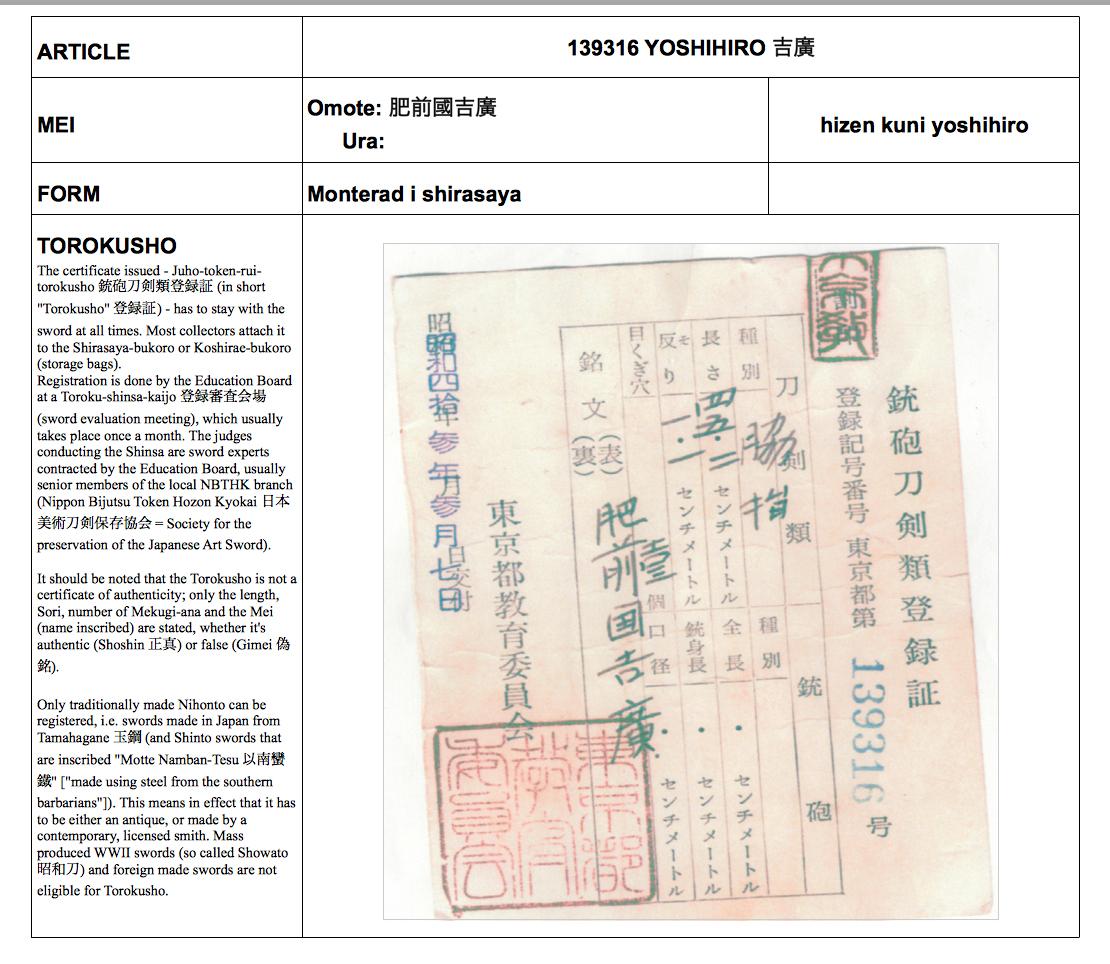 ARTICLE
139316 YOSHIHIRO 吉廣
MEI
Omote: 肥前國吉廣
Ura:
hizen kuni yoshihiro
FORM
Monterad i shirasaya
TOROKUSHO
The certificate issued - Juho-token-rui-
torokusho 銃砲刀剣類登録証 (in short
"Torokusho" 登録証) - has to stay with the
sword at all times. Most collectors attach it
to the Shirasaya-bukoro or Koshirae-bukoro
(storage bags).
Registration is done by the Education Board
at a Toroku-shinsa-kaijo 登録審査会場
(sword evaluation meeting), which usually
takes place once a month. The judges
conducting the Shinsa are sword experts
contracted by the Education Board, usually
senior members of the local NBTHK branch
(Nippon Bijutsu Token Hozon Kyokai 日本
美術刀剣保存協会 = Society for the
preservation of the Japanese Art Sword).
It should be noted that the Torokusho is not a
certificate of authenticity; only the length,
Sori, number of Mekugi-ana and the Mei
(name inscribed) are stated, whether it's
authentic (Shoshin 正真) or false (Gimei 偽
銘).
Only traditionally made Nihonto can be
registered, i.e. swords made in Japan from
Tamahagane 玉鋼 (and Shinto swords that
are inscribed "Motte Namban-Tesu 以南蠻
鐵" ["made using steel from the southern
barbarians"]). This means in effect that it has
to be either an antique, or made by a
contemporary, licensed smith. Mass
produced WWII swords (so called Showato
昭和刀) and foreign made swords are not
eligible for Torokusho.
銃砲刀剣類登録証
登録記号番号 東京都第 139316 号
刀剣類
種別 脇指
長さ 四五・二 センチメートル
反り 一・一 センチメートル
目くぎ穴 壹個
銘文 (表) 肥前国吉廣
(裏)
銃砲
種別
全長 ・ センチメートル
銃身長 ・ センチメートル
口径 ・ センチメートル
東京都教育委員会
昭和四拾参年参月七日
年月日交付
東京都教育委員会